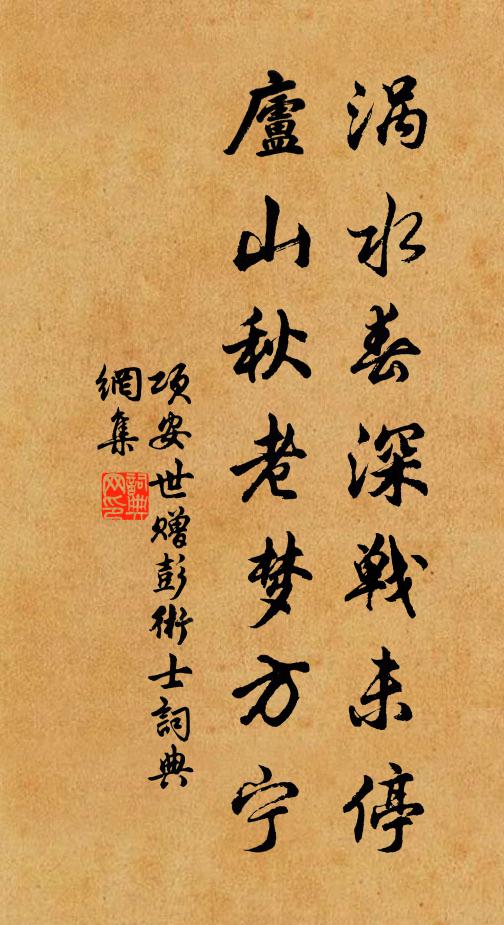 涡水春深戦未停
廬山秋老梦方宁
项安世赠彭術士詞典
網集
詞典
网印